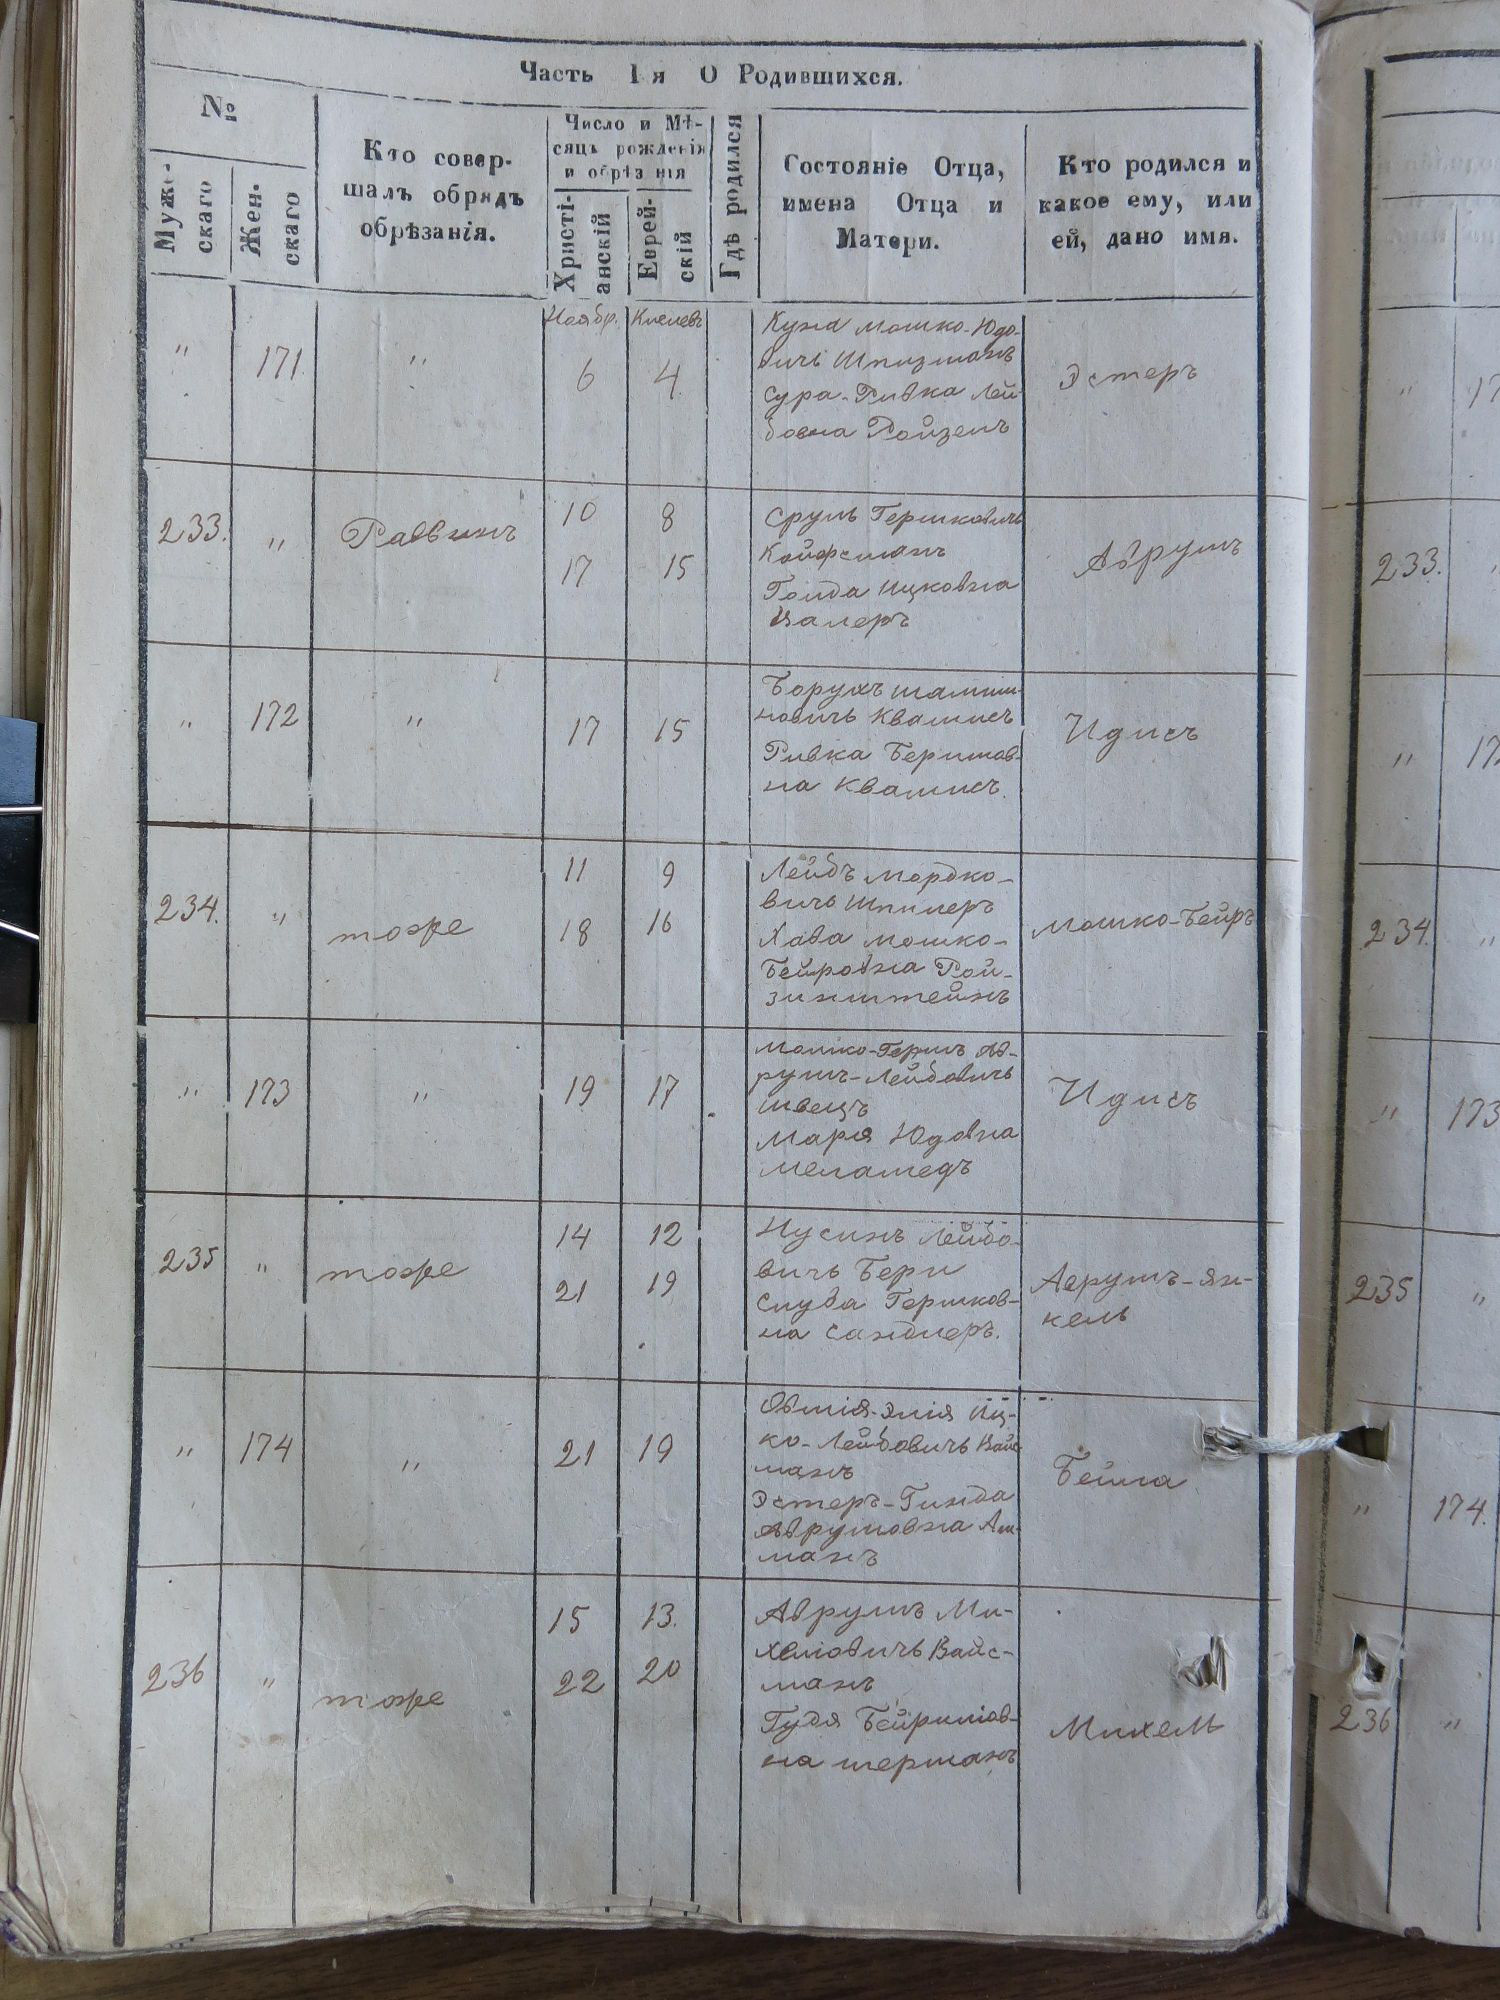 Часть I я О Родившихся.
№
Мужескаго
Женскаго
Кто совершалъ обрядъ обрѣзанія.
Число и Мѣсяцъ рожденія и обрѣз нія
Христіанскій
Еврейскій
Гдѣ родился
Состояніе Отца, имена Отца и Матери.
Кто родился и какое ему, или ей, дано имя.
Ноябр. Кислевъ
" 171 " 6 4
мошко-Юдо-
вичъ Шпизманъ
Сура-Ривка Лей-
бовна Ройзенъ
Эстеръ
233. " Раввинъ
10 8
17 15
Сруль Гершковичъ
Койфманъ
Голда Ицковна
Цалеръ
Аврумъ
" 172 " 17 15
Борухъ
новичъ Квалисъ
Ривка Беришов-
на Квалисъ.
Идисъ
234. " тоже
11 9
18 16
Лейбъ мордко-
вичъ Шпилеръ
Хава мошко-
Бейровна Рой-
зинштейнъ
мошко-Бейръ
" 173 " 19 17
мошко-Гершъ Ав-
румъ-Лейбовичъ
швецъ
Марія Юдовна
меламедъ
Идисъ
235 " тоже
14 12
21 19
Нусинъ Лейбо-
вичъ Бери
Слува Гершков-
на Сандлеръ.
Аврумъ-Ян-
кель
" 174 " 21 19
Овшія-Элія Иц-
ко-Лейбовичъ Вайс-
манъ
Эстеръ-Гинда
Аврумовна
манъ
Бейла
236 " тоже
15 13.
22 20
Аврумъ Ми-
хелевичъ Вайс-
манъ
Гудя
на шерманъ
Михель
" 17
233. "
" 17
234. "
" 173
235 "
" 174.
236 "